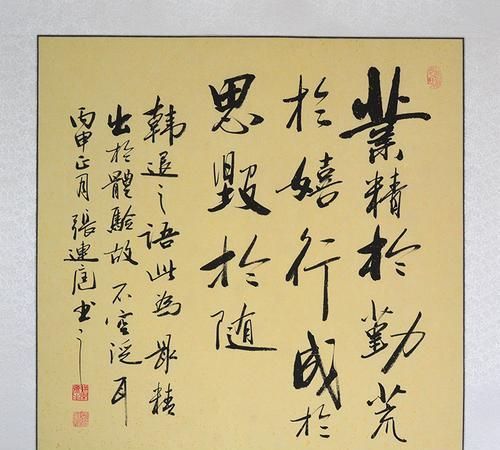 業精於勤荒
於嬉行成於
思毀於随
韓退之語此為最精
出於體驗故不空泛耳
丙申正月張連庭书之